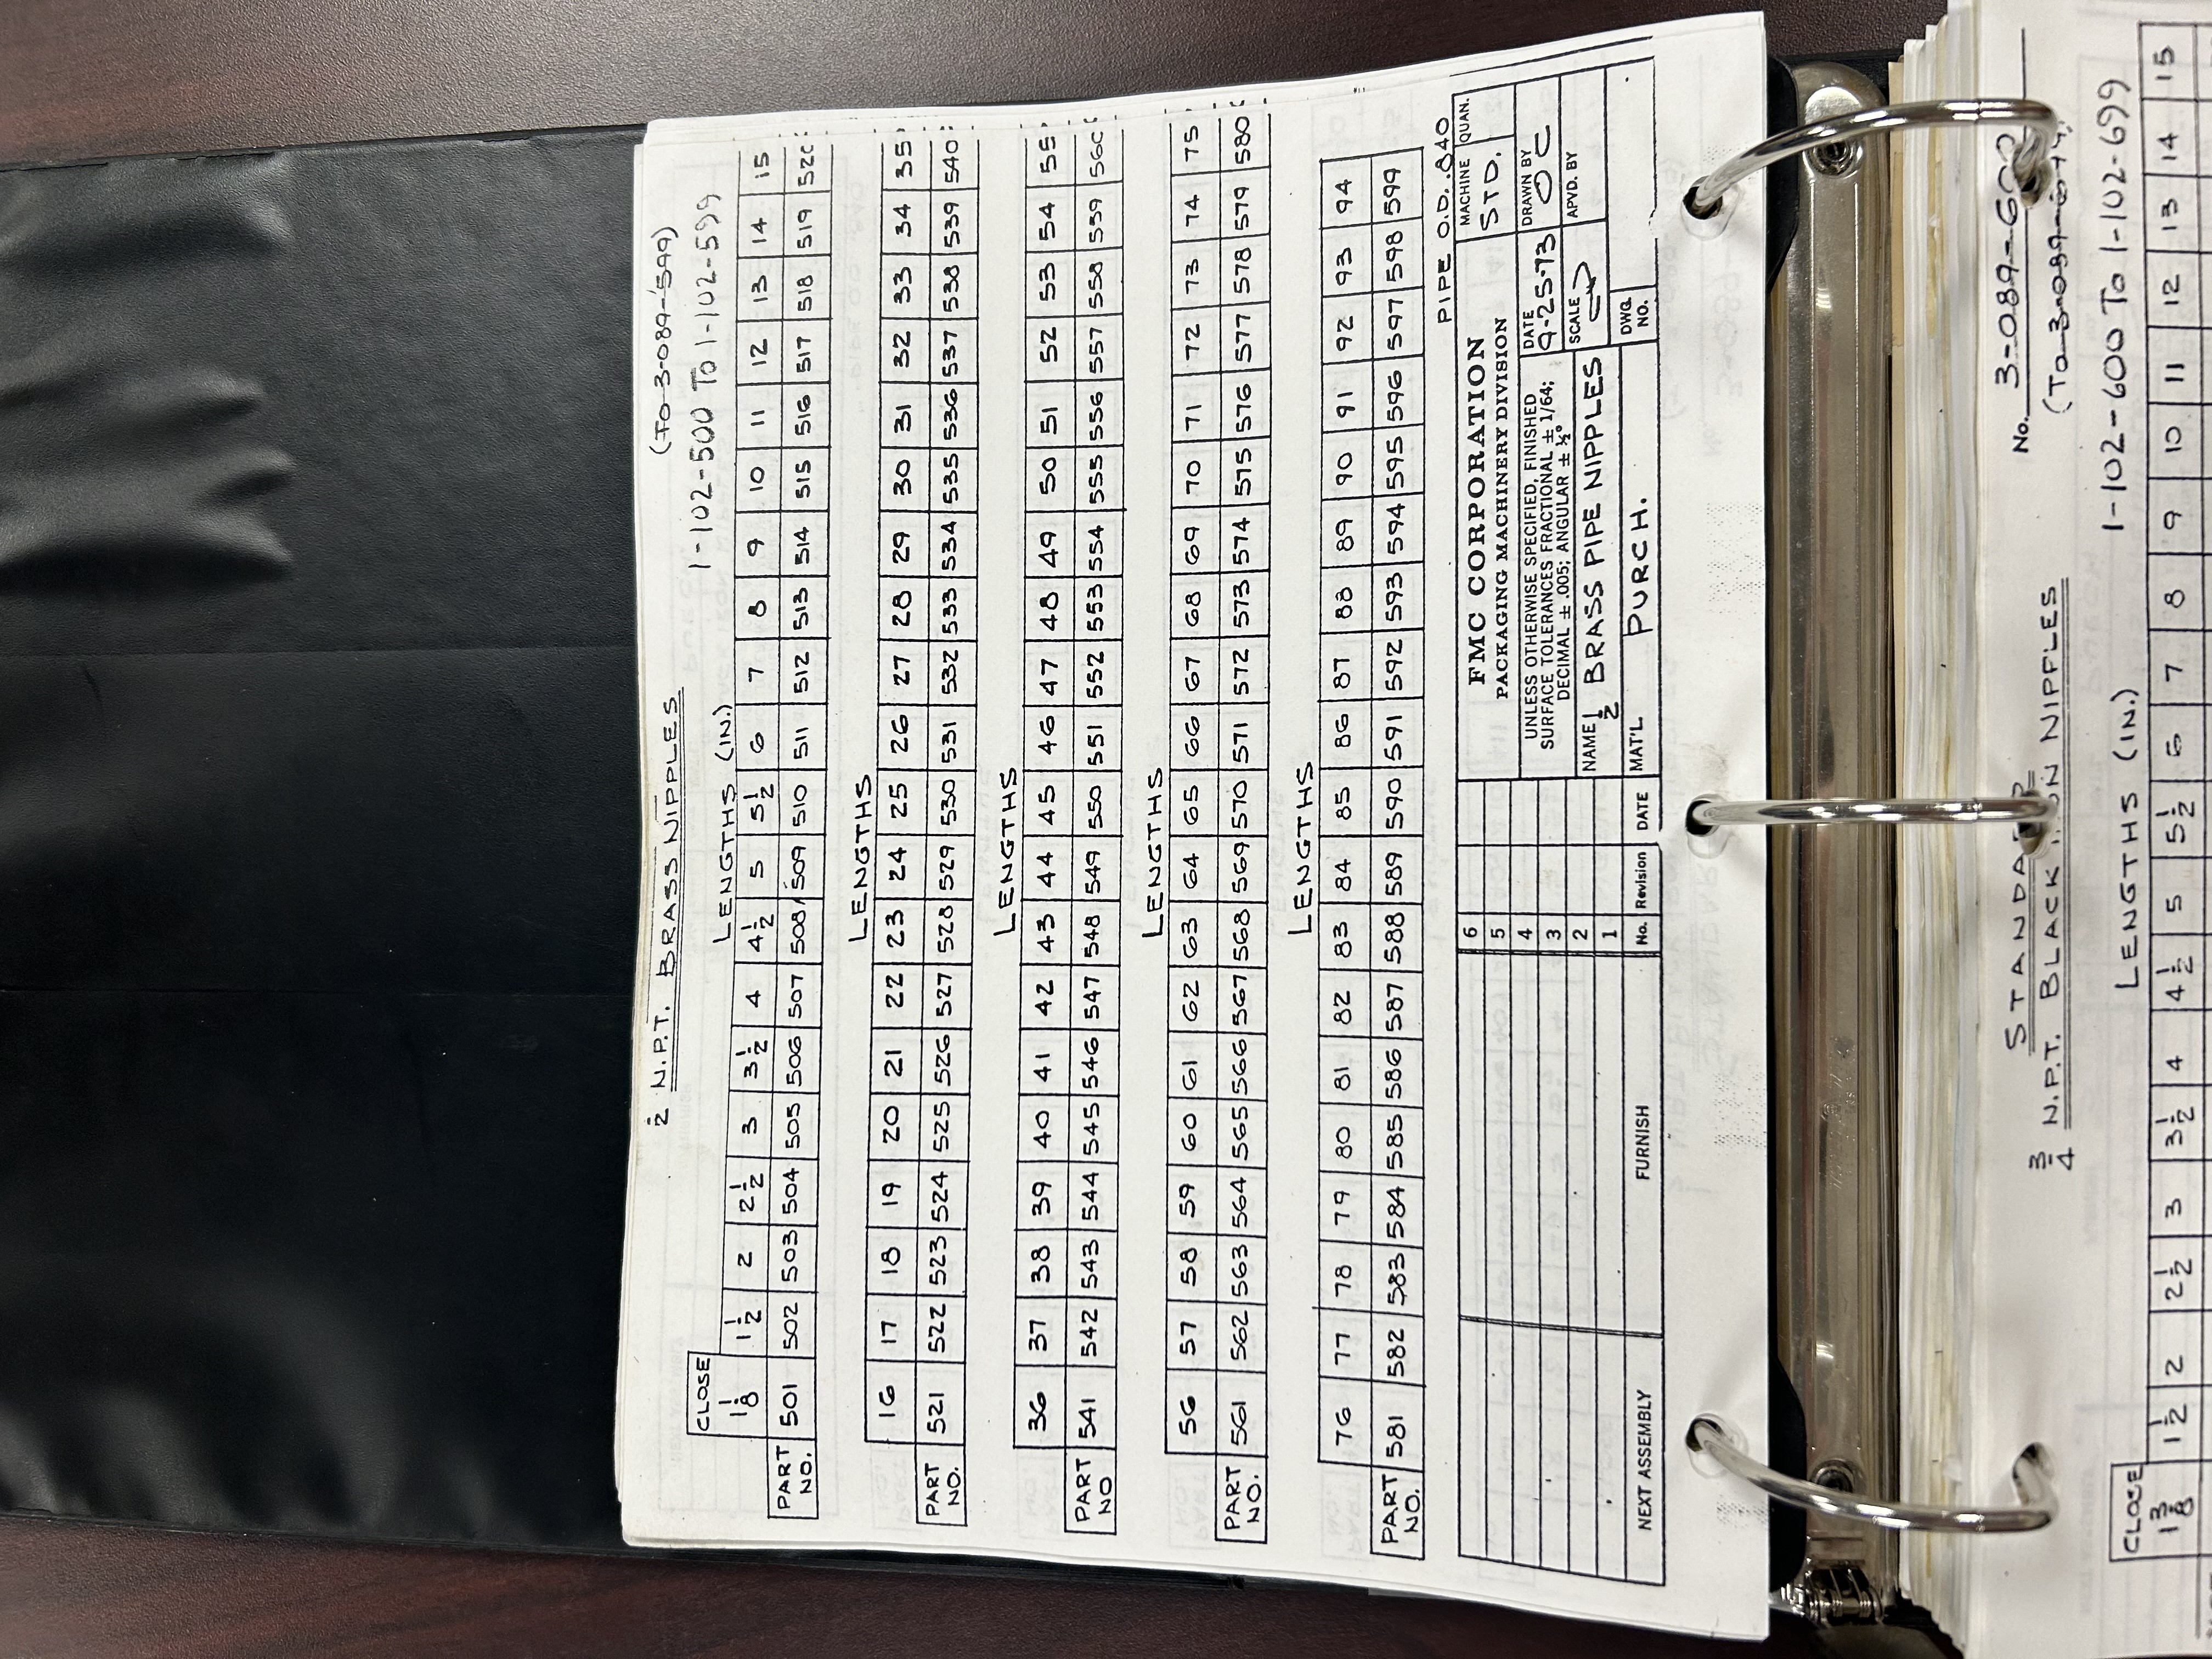 1/2 N.P.T. BRASS NIPPLES
(TO 3-089-599)
1-102-500 TO 1-102-599
CLOSE LENGTHS (IN.)
1 1/8 1 1/2 2 2 1/2 3 3 1/2 4 4 1/2 5 5 1/2 6 7 8 9 10 11 12 13 14 15
PART NO. 501 502 503 504 505 506 507 508 509 510 511 512 513 514 515 516 517 518 519 520
LENGTHS
16 17 18 19 20 21 22 23 24 25 26 27 28 29 30 31 32 33 34 35
PART NO. 521 522 523 524 525 526 527 528 529 530 531 532 533 534 535 536 537 538 539 540
LENGTHS
36 37 38 39 40 41 42 43 44 45 46 47 48 49 50 51 52 53 54 55
PART NO 541 542 543 544 545 546 547 548 549 550 551 552 553 554 555 556 557 558 559 560
LENGTHS
56 57 58 59 60 61 62 63 64 65 66 67 68 69 70 71 72 73 74 75
PART NO. 561 562 563 564 565 566 567 568 569 570 571 572 573 574 575 576 577 578 579 580
LENGTHS
76 77 78 79 80 81 82 83 84 85 86 87 88 89 90 91 92 93 94
PART NO. 581 582 583 584 585 586 587 588 589 590 591 592 593 594 595 596 597 598 599
PIPE O.D. .840
6
5
4
3
2
1
NEXT ASSEMBLY FURNISH No. Revision DATE
FMC CORPORATION
PACKAGING MACHINERY DIVISION
MACHINE STD. QUAN.
UNLESS OTHERWISE SPECIFIED, FINISHED
SURFACE TOLERANCES FRACTIONAL ± 1/64;
DECIMAL ± .005; ANGULAR ± ½°
DATE 9-25-73 DRAWN BY OC
NAME 1/2 BRASS PIPE NIPPLES
SCALE APVD. BY
MAT'L PURCH.
DWG. NO.
STANDARD
No. 3-089-600
3/4 N.P.T. BLACK IRON NIPPLES
(TO 3-089-
1-102-600 TO 1-102-699
CLOSE LENGTHS (IN.)
1 3/8 1 1/2 2 2 1/2 3 3 1/2 4 4 1/2 5 5 1/2 6 7 8 9 10 11 12 13 14 15